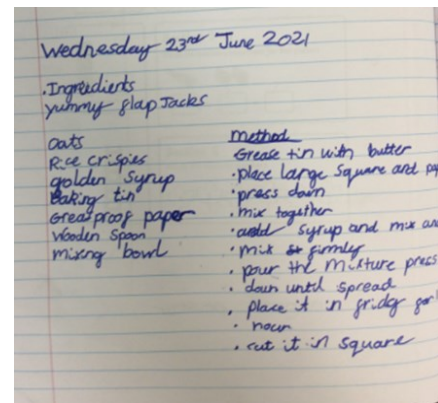 Wednesday 23rd June 2021
.Ingredients
yummy flap Jacks
oats
Rice crispies
golden syrup
Baking tin
Greasproof paper
Wooden Spoon
mixing bowl
method
Grease tin with butter
.place large square and
.press down
.mix together
.add syrup and mix and
.mix firmly
.pour the mixture press
.down until spread
.place it in fridge
.hour
.cut it in square